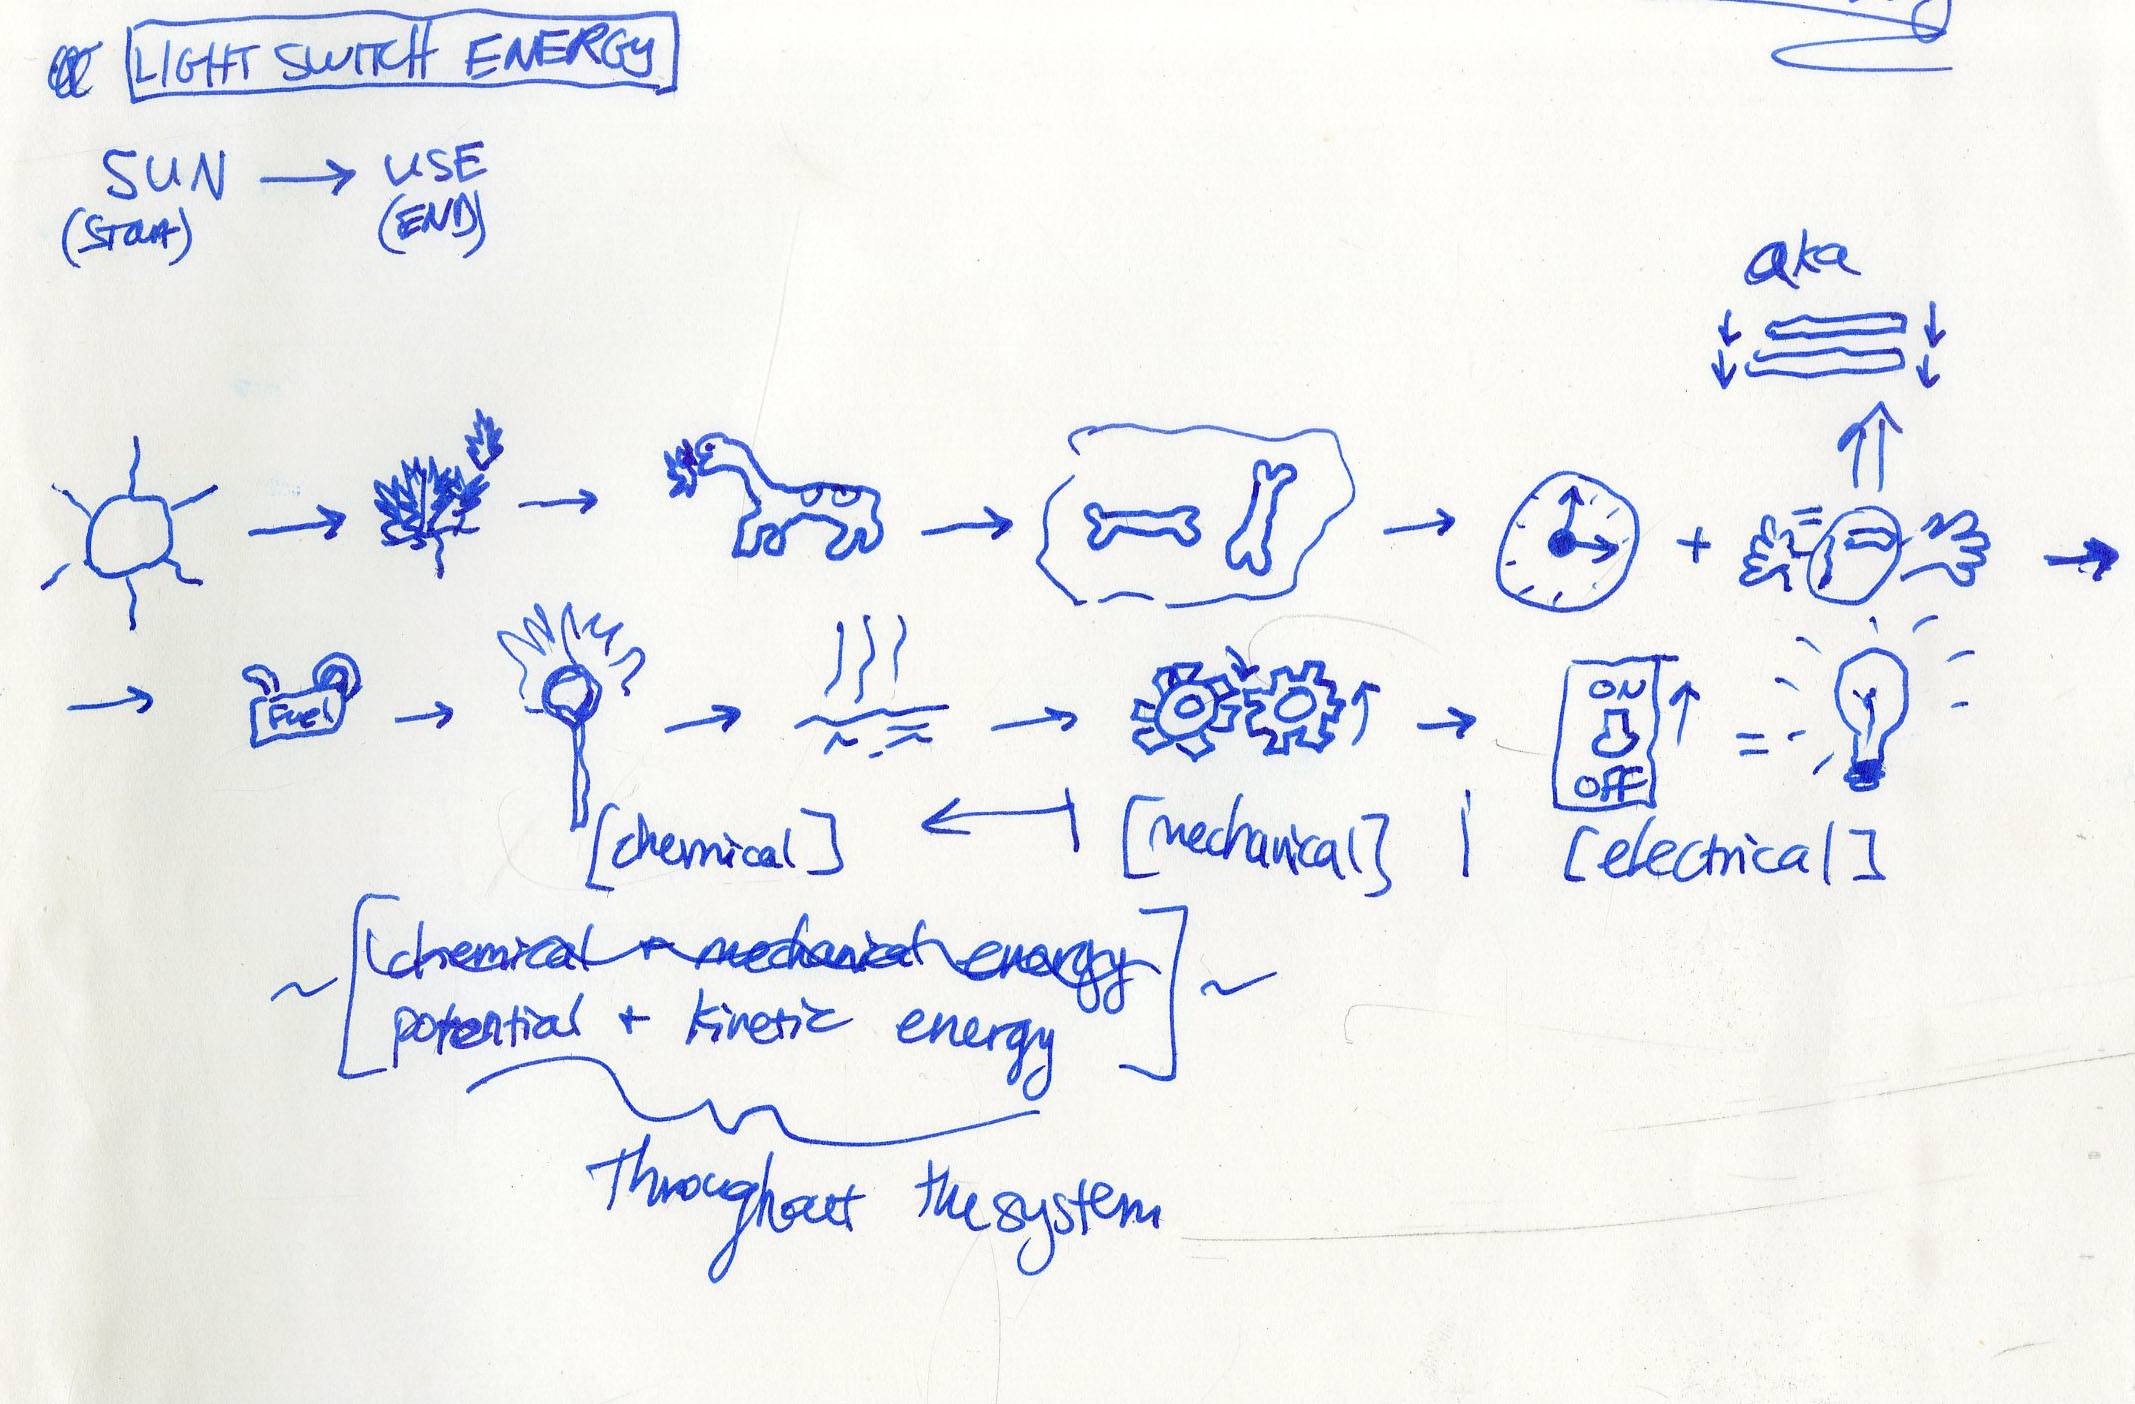 LIGHT SWITCH ENERGY
SUN → USE
(START) (END)
aka
Fuel
ON
OFF
[chemical] [mechanical] [electrical]
chemical + mechanical energy
potential + kinetic energy
Throughout the system